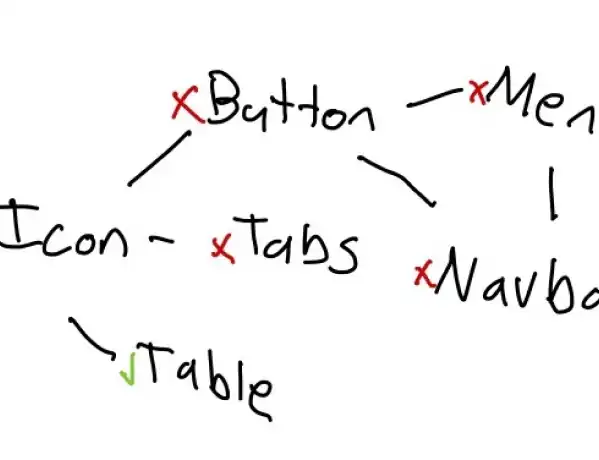 xButton
xMen
Icon
xTabs
xNavba
√Table